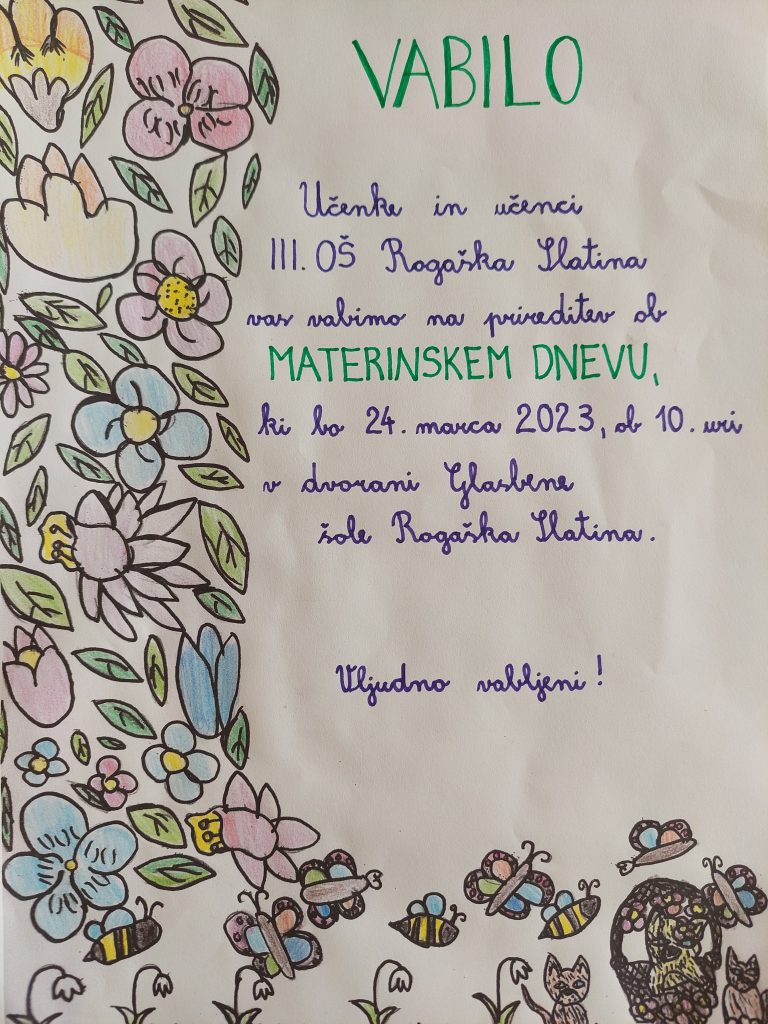 VABILO
Učenke in učenci
III. OŠ Rogaška Slatina
vas vabimo na prireditev ob
MATERINSKEM DNEVU,
ki bo 24. marca 2023, ob 10. uri
v dvorani Glasbene
šole Rogaška Slatina.
Vljudno vabljeni!